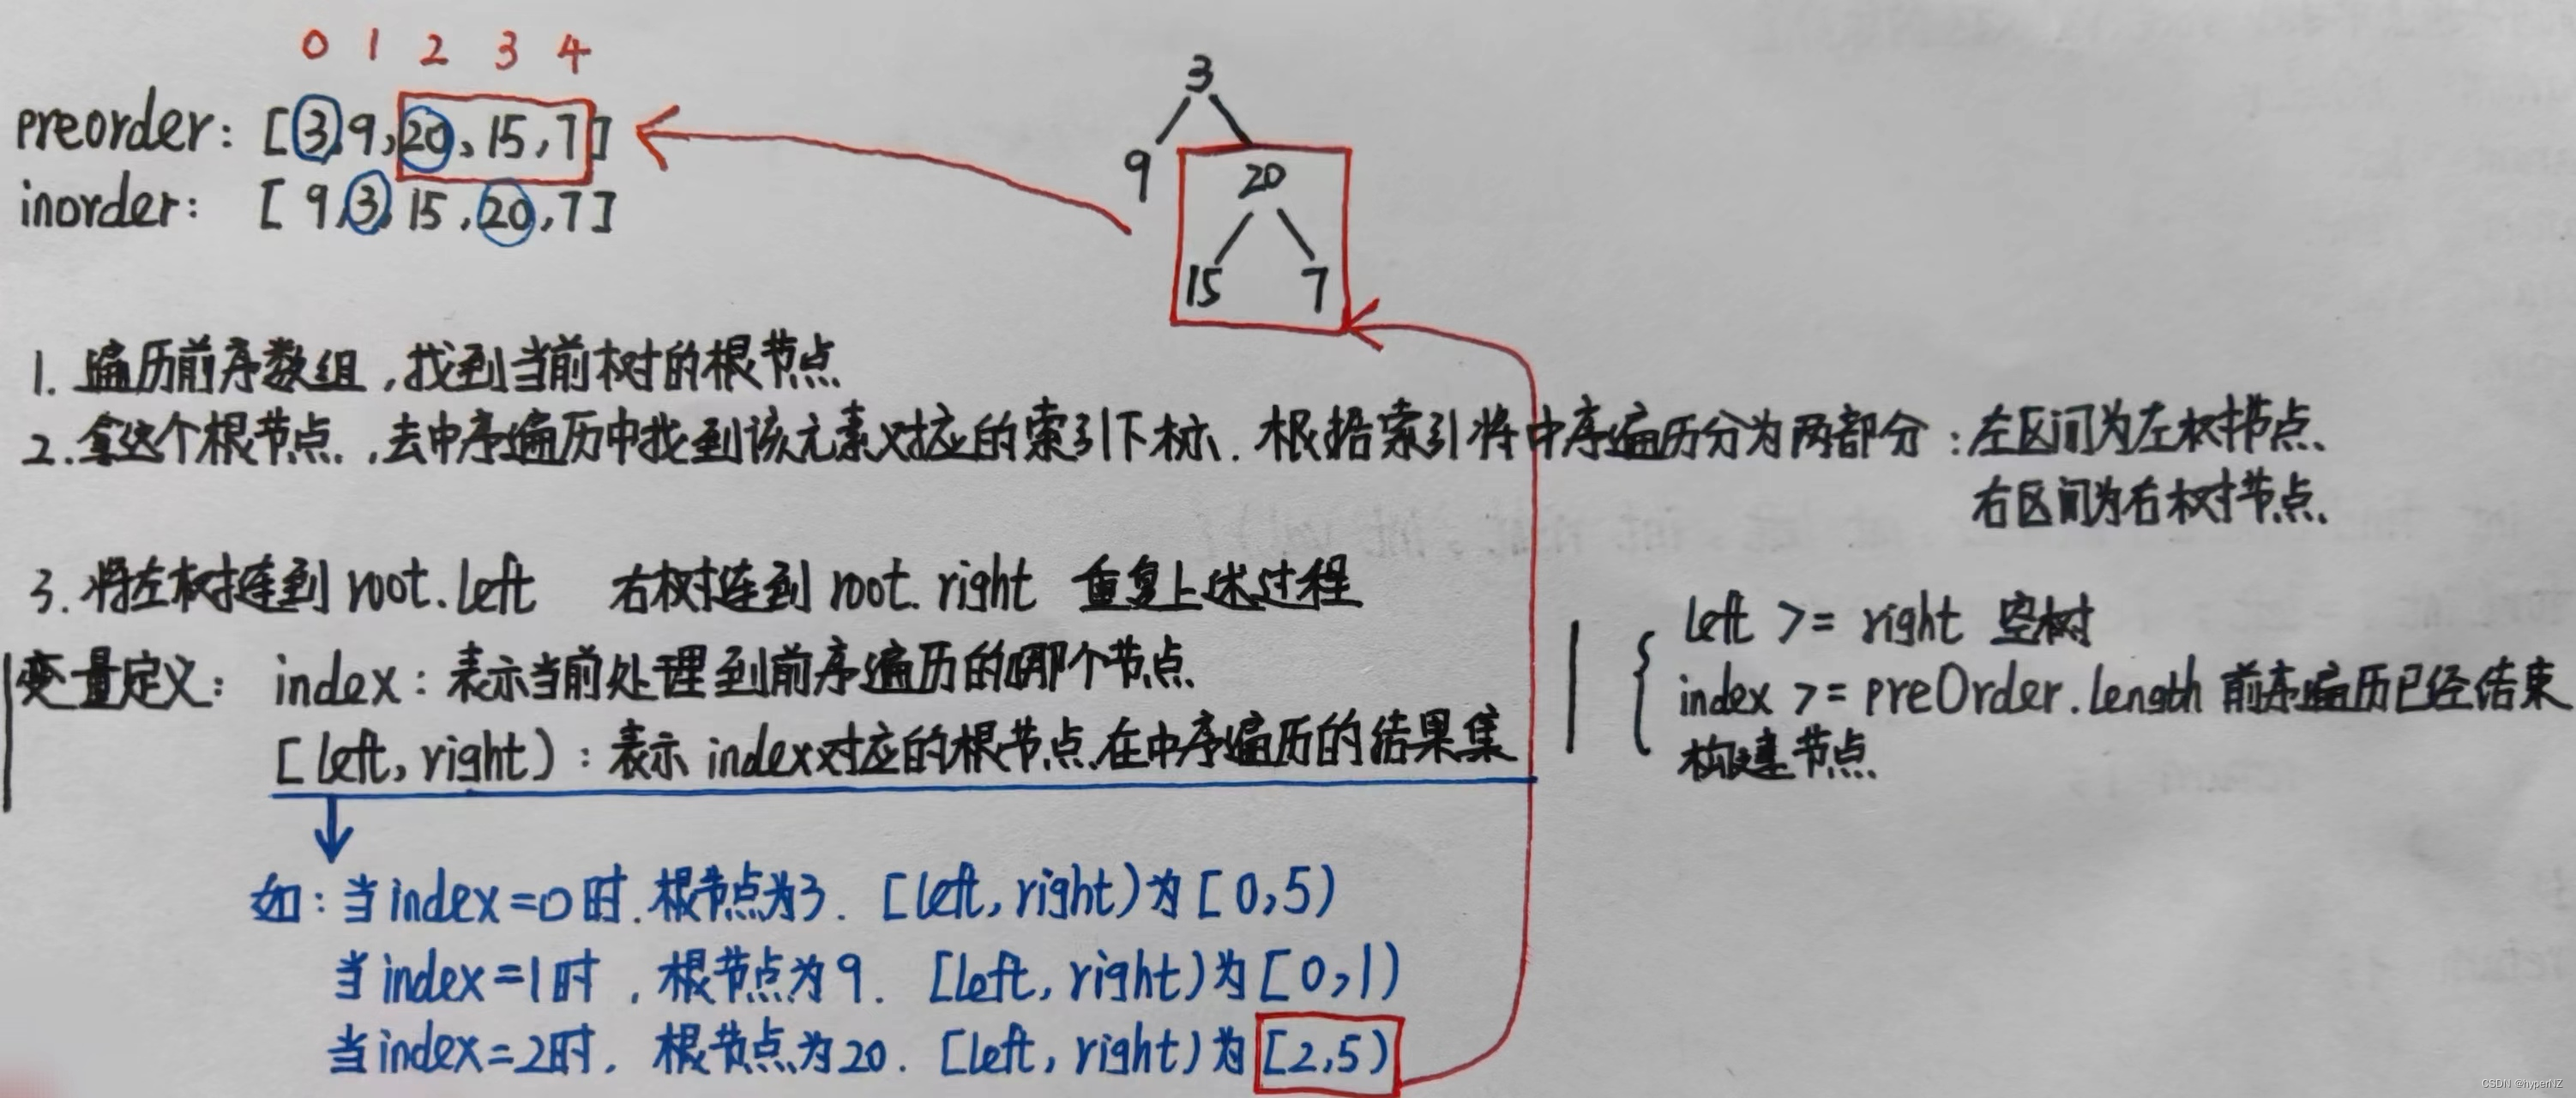 0 1 2 3 4
preorder: [3,9,20,15,7]
inorder: [9,3,15,20,7]
3
9 20
15 7
1. 遍历前序数组,找到当前树的根节点
2.拿这个根节点,去中序遍历中找到该元素对应的索引下标.根据索引将中序遍历分为两部分:左区间为左树节点、
右区间为右树节点、
3.将左树连到 root.left 右树连到 root.right 重复上述过程
变量定义: index:表示当前处理到前序遍历的哪个节点、
[left,right):表示 index对应的根节点在中序遍历的结果集
left >= right 空树
index >= preOrder.length 前序遍历已经结束
构建节点
如:当index=0时.根节点为3. [left,right)为[0,5)
当index=1时,根节点为9. [left,right)为[0,1)
当index=2时,根节点为20. [left,right)为[2,5)
CSDN @hyperNZ